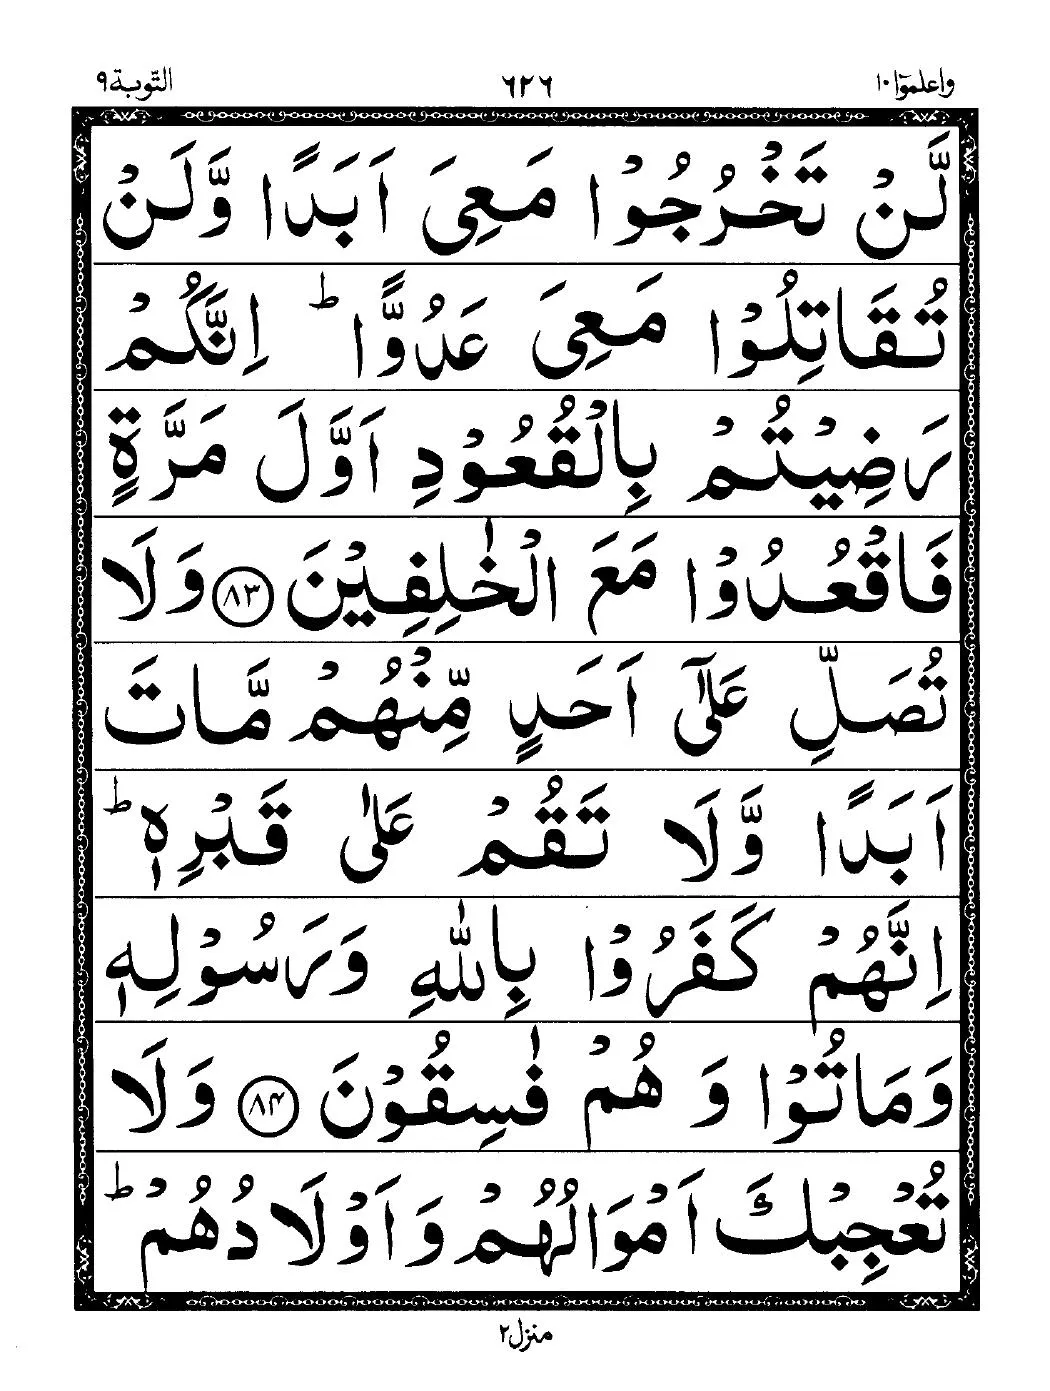 واعلموٓا ١٠ ٦٢٦ التّوبة ٩
لَّنْ تَخْرُجُوْا مَعِیَ اَبَدًا وَّلَنْ
تُقَاتِلُوْا مَعِیَ عَدُوًّا ؕ اِنَّكُمْ
رَضِیْتُمْ بِالْقُعُوْدِ اَوَّلَ مَرَّةٍ
فَاقْعُدُوْا مَعَ الْخٰلِفِیْنَ ﴿۸۳﴾ وَلَا
تُصَلِّ عَلٰۤی اَحَدٍ مِّنْهُمْ مَّاتَ
اَبَدًا وَّلَا تَقُمْ عَلٰی قَبْرِهٖ ؕ
اِنَّهُمْ كَفَرُوْا بِاللّٰهِ وَرَسُوْلِهٖ
وَمَاتُوْا وَ هُمْ فٰسِقُوْنَ ﴿۸۴﴾ وَلَا
تُعْجِبْكَ اَمْوَالُهُمْ وَاَوْلَادُهُمْ ؕ
منزل ٢